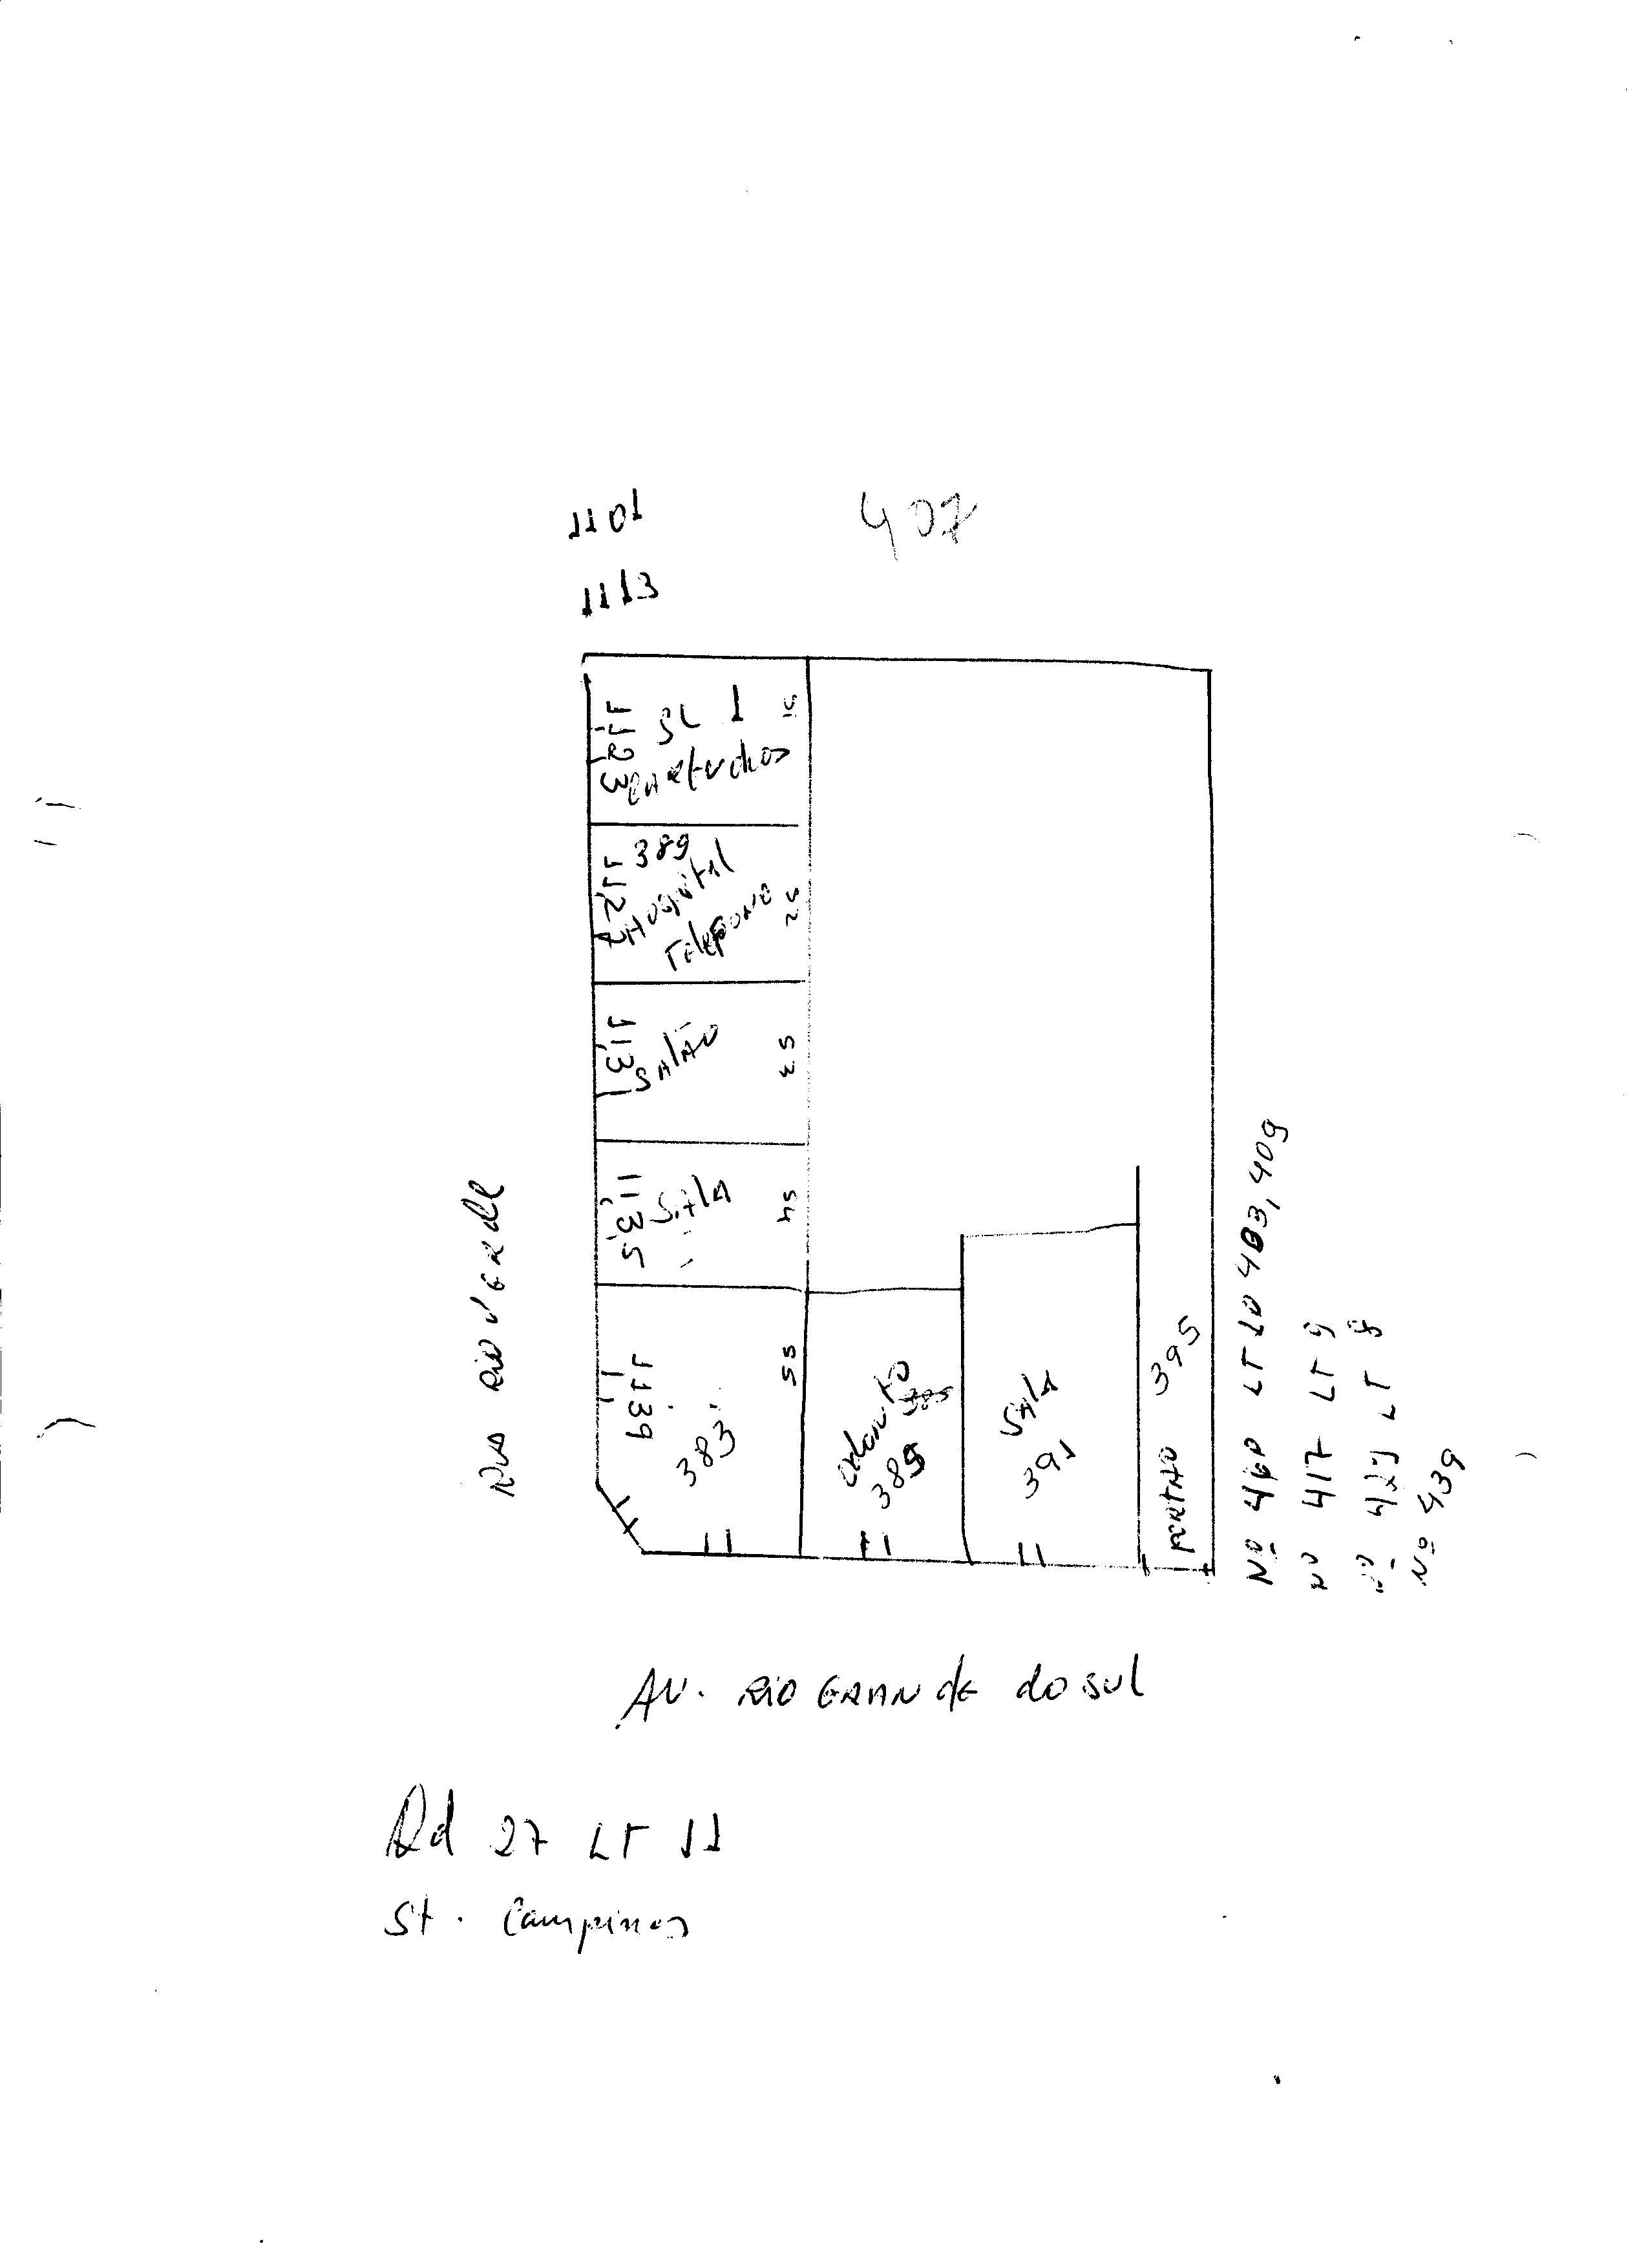 1101
407
1113
1123
SL 1
CARTUCHOS
S1
389
1127
HOSPITAL
TELEFONE
S2
1131
SALÃO
S3
1135
SALA
S4
1139
383
S5
389
SALA
391
PORTÃO 395
RUA RIO VERDE
LT 10 403, 409
Nº 417 LT 9
LT 8
Nº 439
AV. RIO GRANDE do SUL
Qd 27 LT 11
St. Campinas